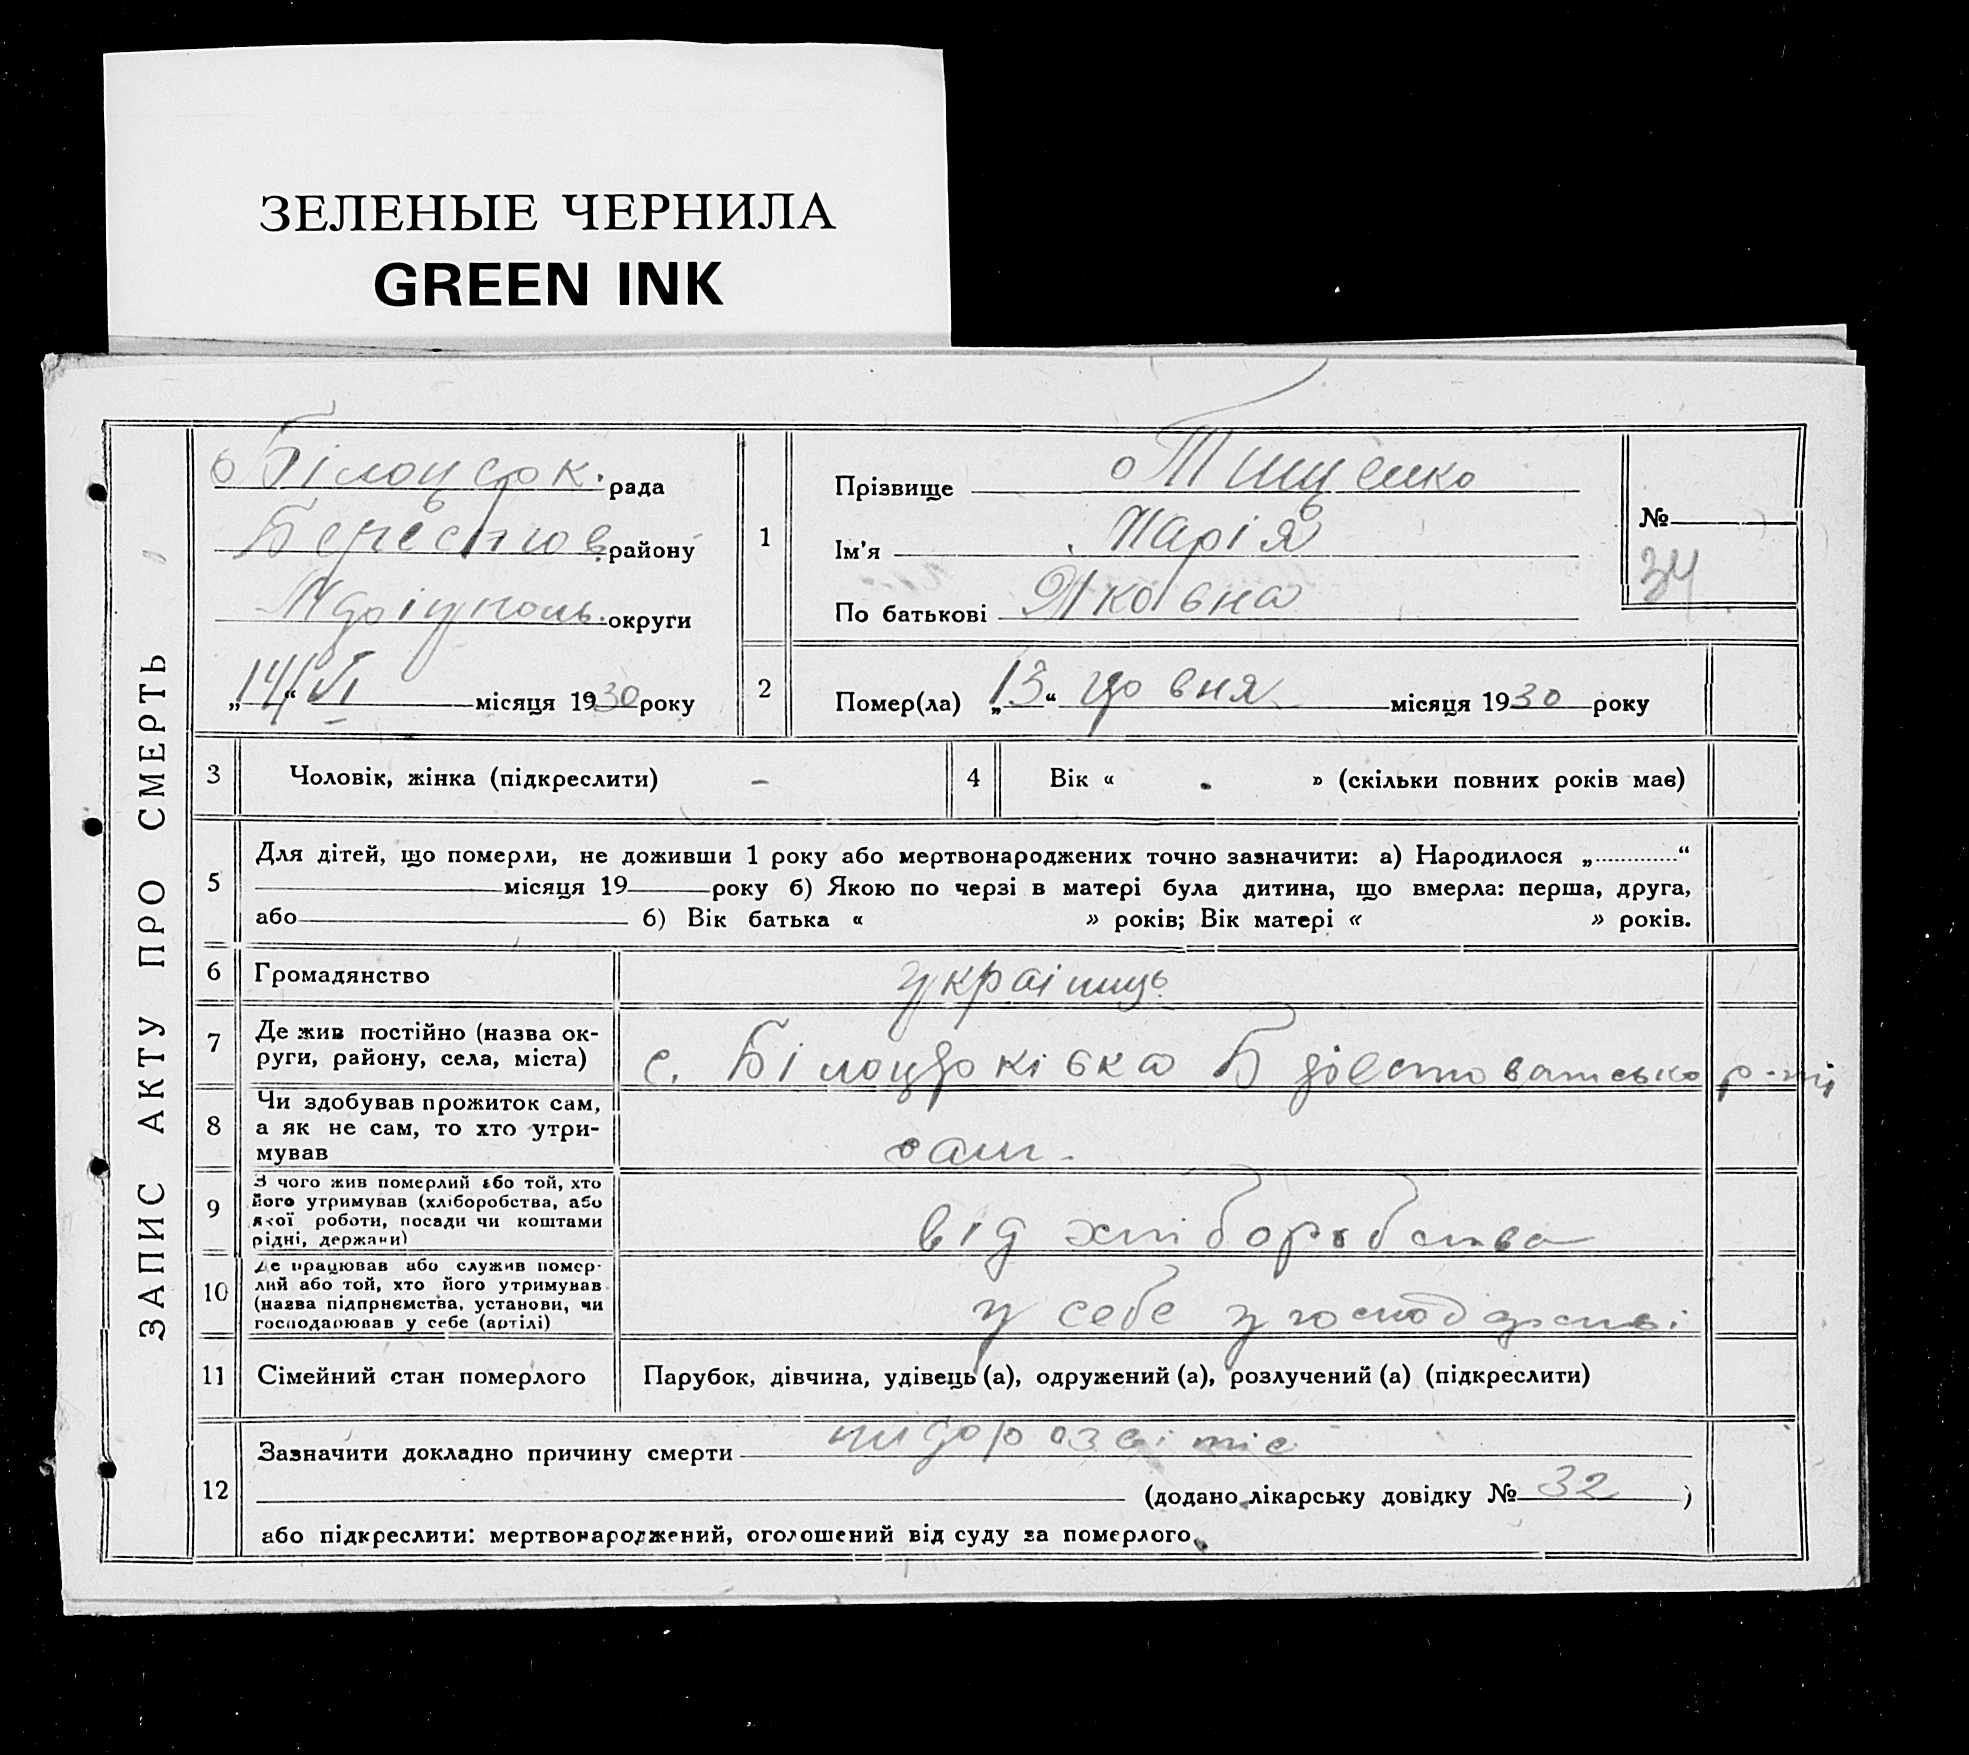 ЗЕЛЕНЫЕ ЧЕРНИЛА
GREEN INK
ЗАПИС АКТУ ПРО СМЕРТЬ
Білоцерк. рада
Берестов. району
Маріуполь. округи
„14“ VI місяця 1930 року
1
Прізвище Тищенко
Ім'я Марія
По батькові Яковна
№
34
2
Помер(ла) „13“ червня місяця 1930 року
3 Чоловік, жінка (підкреслити) -
4 Вік « » (скільки повних років має)
5
Для дітей, що померли, не доживши 1 року або мертвонароджених точно зазначити: а) Народилося „.............“
місяця 19 року б) Якою по черзі в матері була дитина, що вмерла: перша, друга,
або б) Вік батька « » років; Вік матері « » років.
6 Громадянство
українць
7
Де жив постійно (назва ок-
руги, району, села, міста)
с. Б
8
Чи здобував прожиток сам,
а як не сам, то хто утри-
мував
сам.
9
З чого жив померлий або той, хто
його утримував (хліборобства, або
якої роботи, посади чи коштами
рідні, держави)
від хліборобства
10
Де працював або служив помер-
лий або той, хто його утримував
(назва підприємства, установи, чи
господарював у себе (артілі)
у себе у господарстві
11 Сімейний стан померлого
Парубок, дівчина, удівець (а), одружений (а), розлучений (а) (підкреслити)
12
Зазначити докладно причину смерти
(додано лікарську довідку № 32 )
або підкреслити: мертвонароджений, оголошений від суду за померлого.